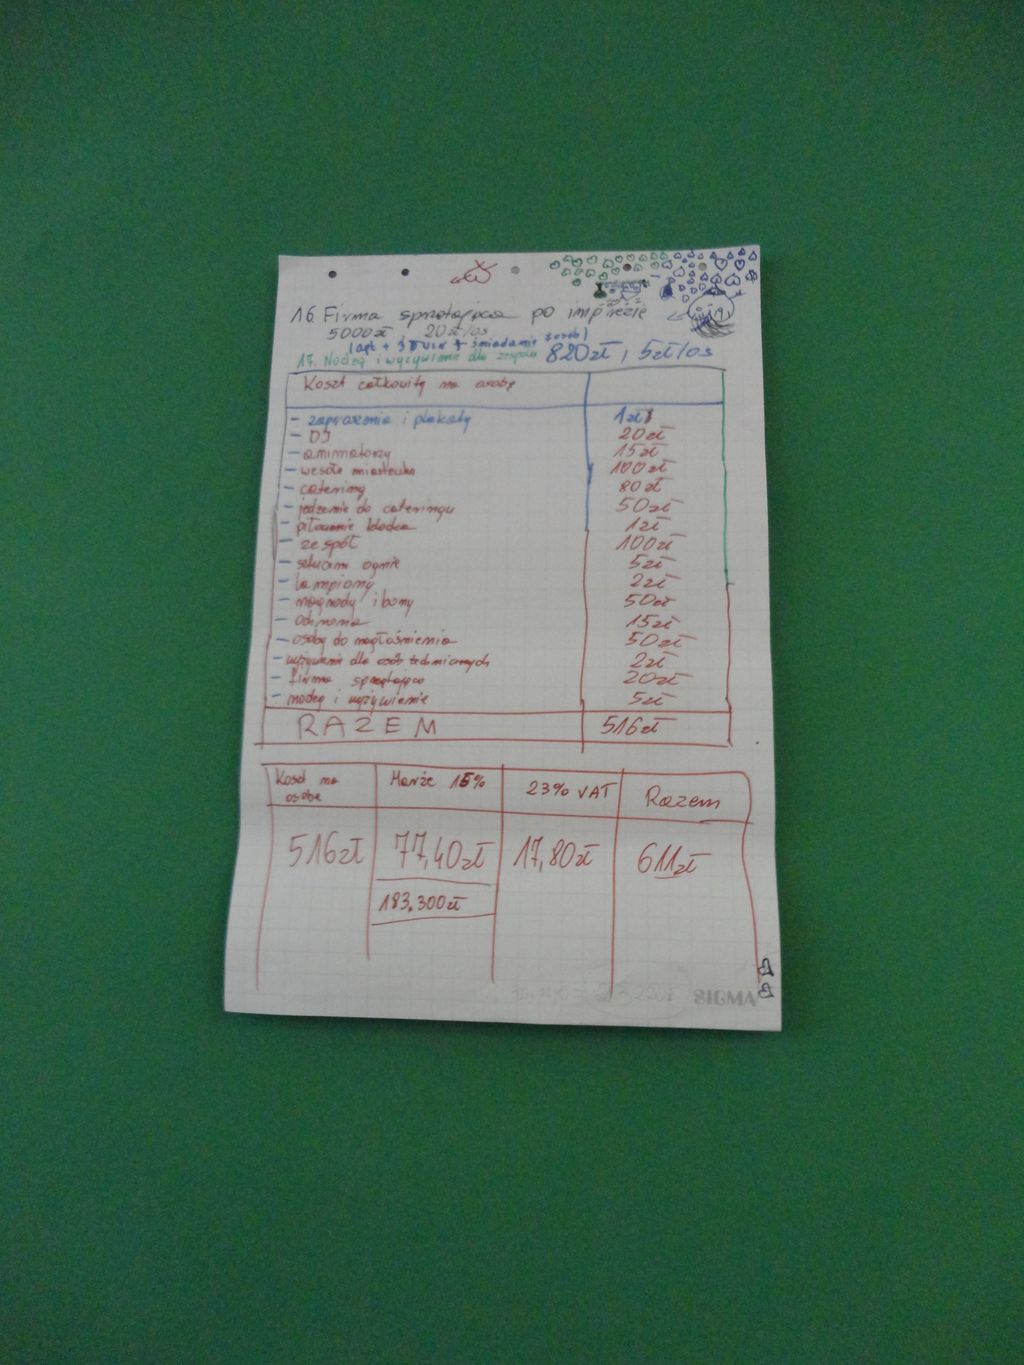 16. Firma sprzątająca po imprezie
5000zł, 20zł/os
(apt + 3 TWIN + śniadanie osób)
17. Nocleg i wyżywienie dla zespołu 820zł, 5zł/os
Koszt całkowity na osobę
- zaproszenia i plakaty 1zł
- DJ 20zł
- animatorzy 15zł
- wesołe miasteczko 100zł
- catering 80zł
- jedzenie do cateringu 50zł
- piłowanie klocka 1zł
- zespół 100zł
- sztuczne ognie 5zł
- lampiony 2zł
- nagrody i bony 50zł
- ochrona 15zł
- osoby do nagłośnienia 50zł
- wyżywienie dla osób technicznych 2zł
- firma sprzątająca 20zł
- nocleg i wyżywienie 5zł
RAZEM 516zł
Koszt na osobę Marże 15% 23% VAT Razem
516zł 77,40zł 17,80zł 611zł
183.300zł
SIGMA